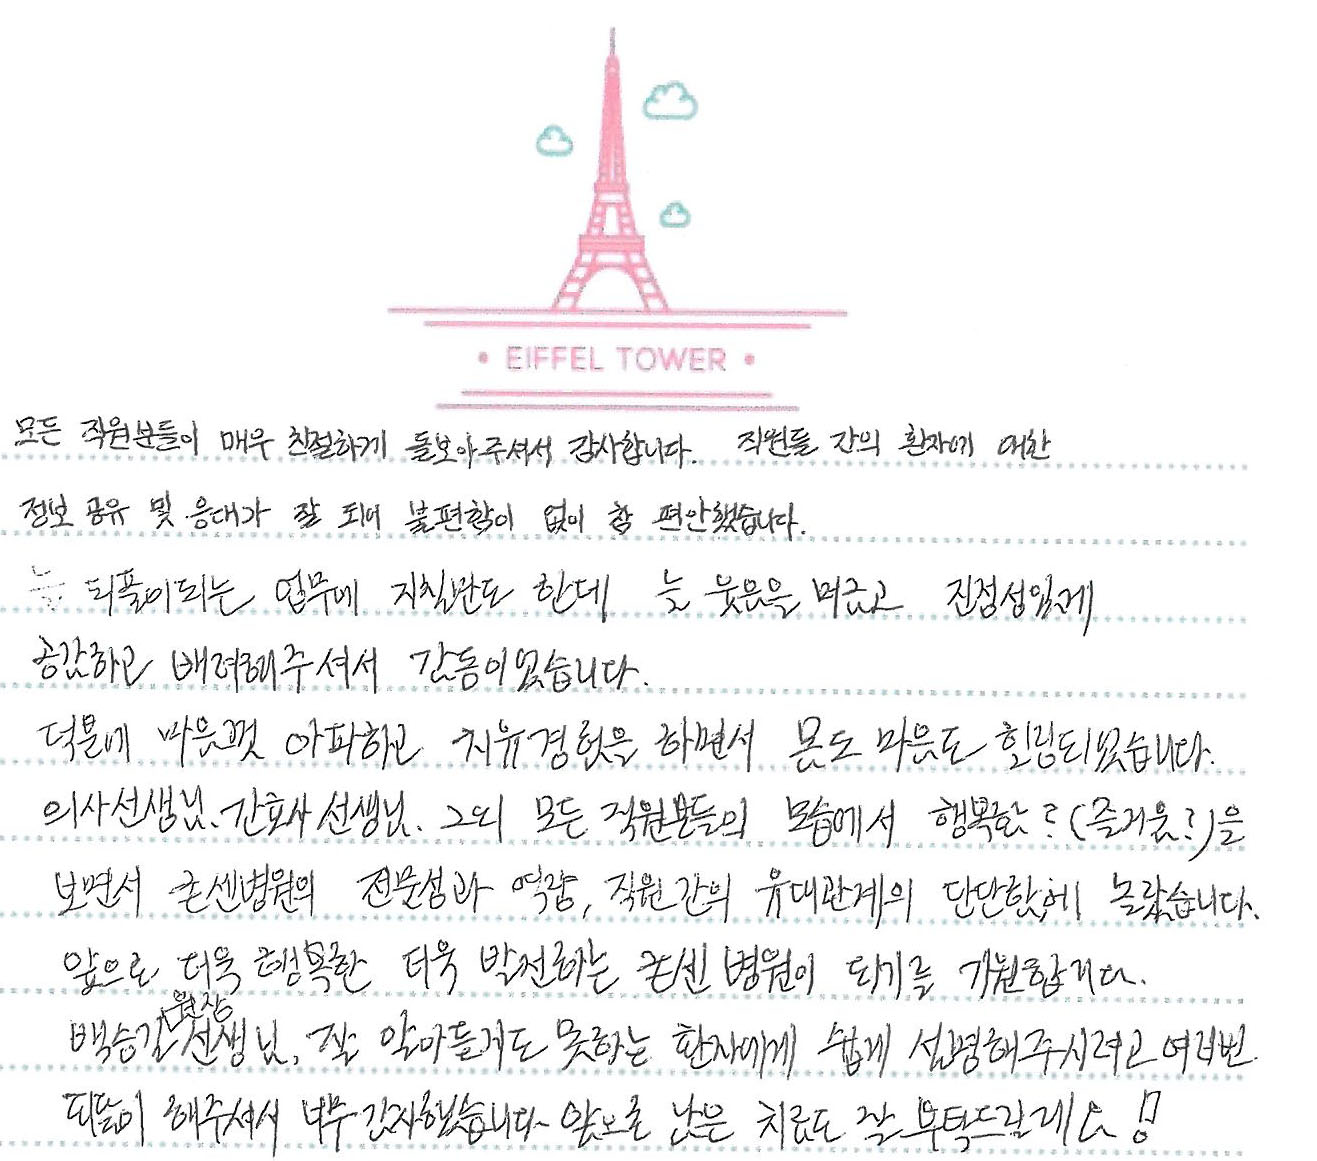 EIFFEL TOWER
모든 직원분들이 매우 친절하게 돌보아주셔서 감사합니다. 직원들 간의 환자에 대한
정보 공유 및 응대가 잘 되어 불편함이 없이 참 편안했습니다.
늘 되풀이되는 업무에 지칠만도 한데 늘 웃음을 머금고 진정성있게
공감하고 배려해주셔서 감동이었습니다.
덕분에 마음껏 아파하고 치유경험을 하면서 몸도 마음도 힐링되었습니다.
의사선생님, 간호사 선생님, 그외 모든 직원분들의 모습에서 행복함?(즐거움?)을
보면서 굿센병원의 전문성과 역량, 직원간의 유대관계의 단단함에 놀랐습니다.
앞으로 더욱 행복한 더욱 발전하는 굿센병원이 되기를 기원합니다.
백승길 원장 선생님, 잘 알아듣지도 못하는 환자에게 쉽게 설명해주시려고 여러번
되풀이 해주셔서 너무 감사했습니다~ 앞으로 남은 치료도 잘 부탁드릴게요!